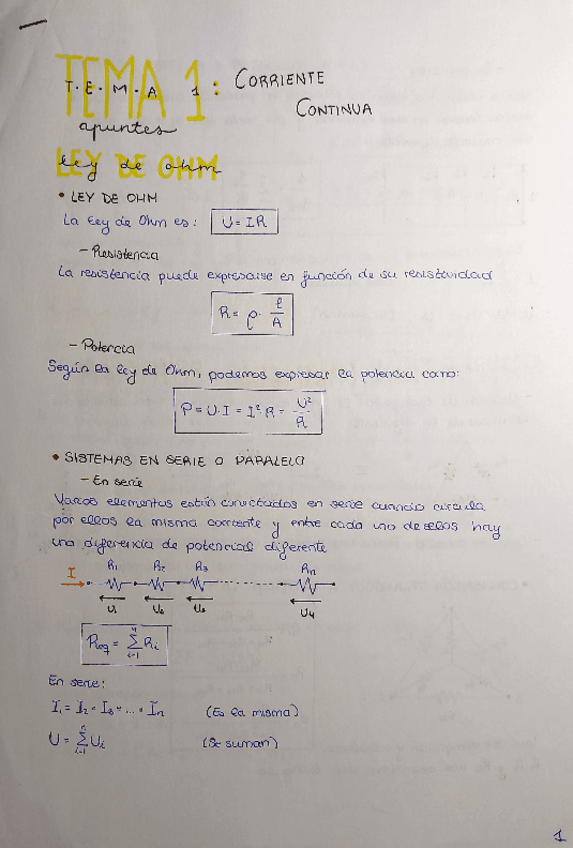 TEMA 1: CORRIENTE
T.E.M.A 1
CONTINUA
apuntes
LEY DE OHM
ley de ohm
• LEY DE OHM
La ley de Ohm es: U = I R
– Resistencia
La resistencia puede expresarse en función de su resistividad
R = ρ · ℓ/A
– Potencia
Según la ley de Ohm, podemos expresar la potencia como:
P = U · I = I² · R = U²/R
• SISTEMAS EN SERIE O PARALELO
– En serie
Varios elementos están conectados en serie cuando circula
por ellos la misma corriente y entre cada uno de ellos hay
una diferencia de potencial diferente
I R₁ R₂ R₃ Rn
U₁ U₂ U₃ U₄
Req = Σ Ri
i=1
En serie:
I₁ = I₂ = I₃ = ... = In (Es la misma)
U = Σ Ui (Se suman)
i=1
1